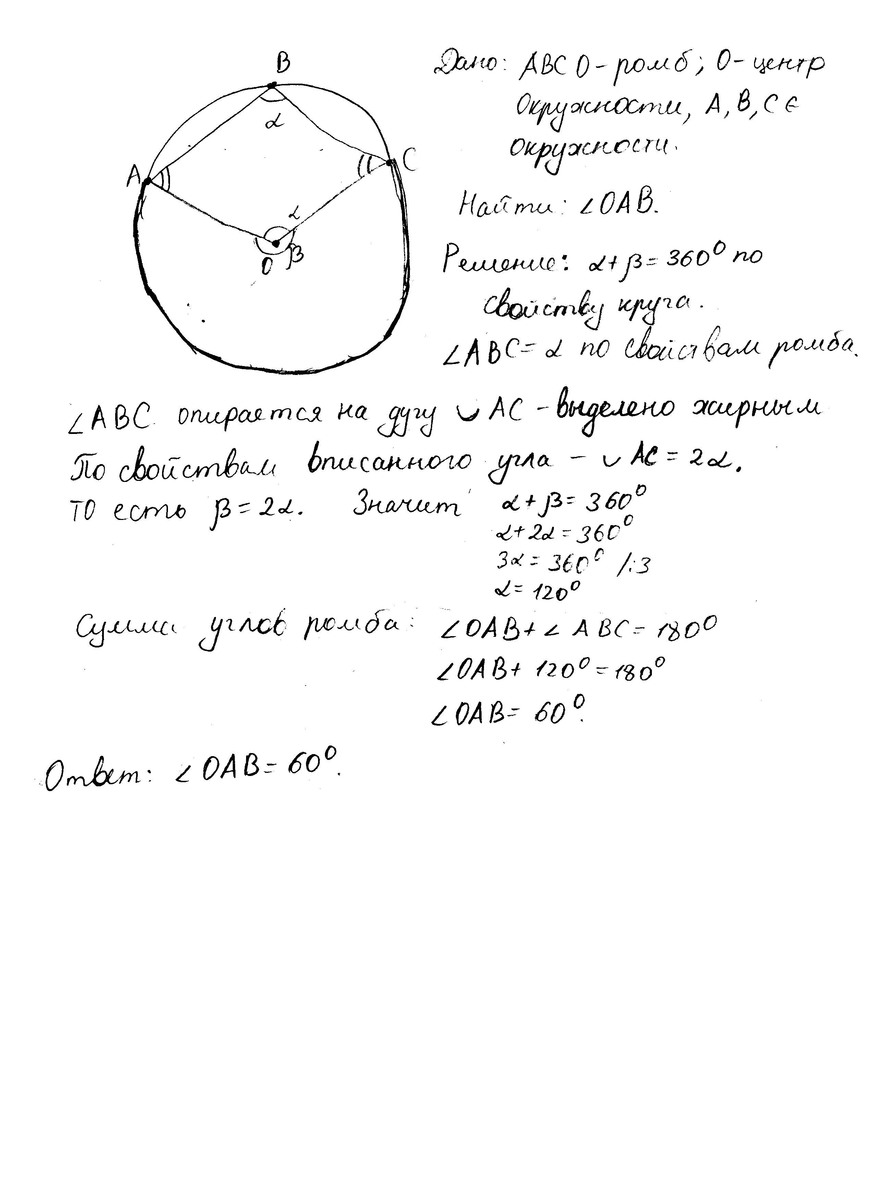 B
α
A
C
α
O
β
Дано: ABCO - ромб; O - центр
Окружности, A, B, C ∈
окружности.
Найти: ∠OAB.
Решение: α+β=360⁰ по
свойству круга.
∠ABC=α по свойствам ромба.
∠ABC опирается на дугу ◡ AC - выделено жирным
По свойствам вписанного угла - ◡ AC = 2α.
то есть β=2α. Значит α+β=360⁰
α+2α=360⁰
3α=360⁰ /:3
α=120⁰
Сумма углов ромба: ∠OAB+∠ABC=180⁰
∠OAB+120⁰=180⁰
∠OAB=60⁰.
Ответ: ∠OAB=60⁰.